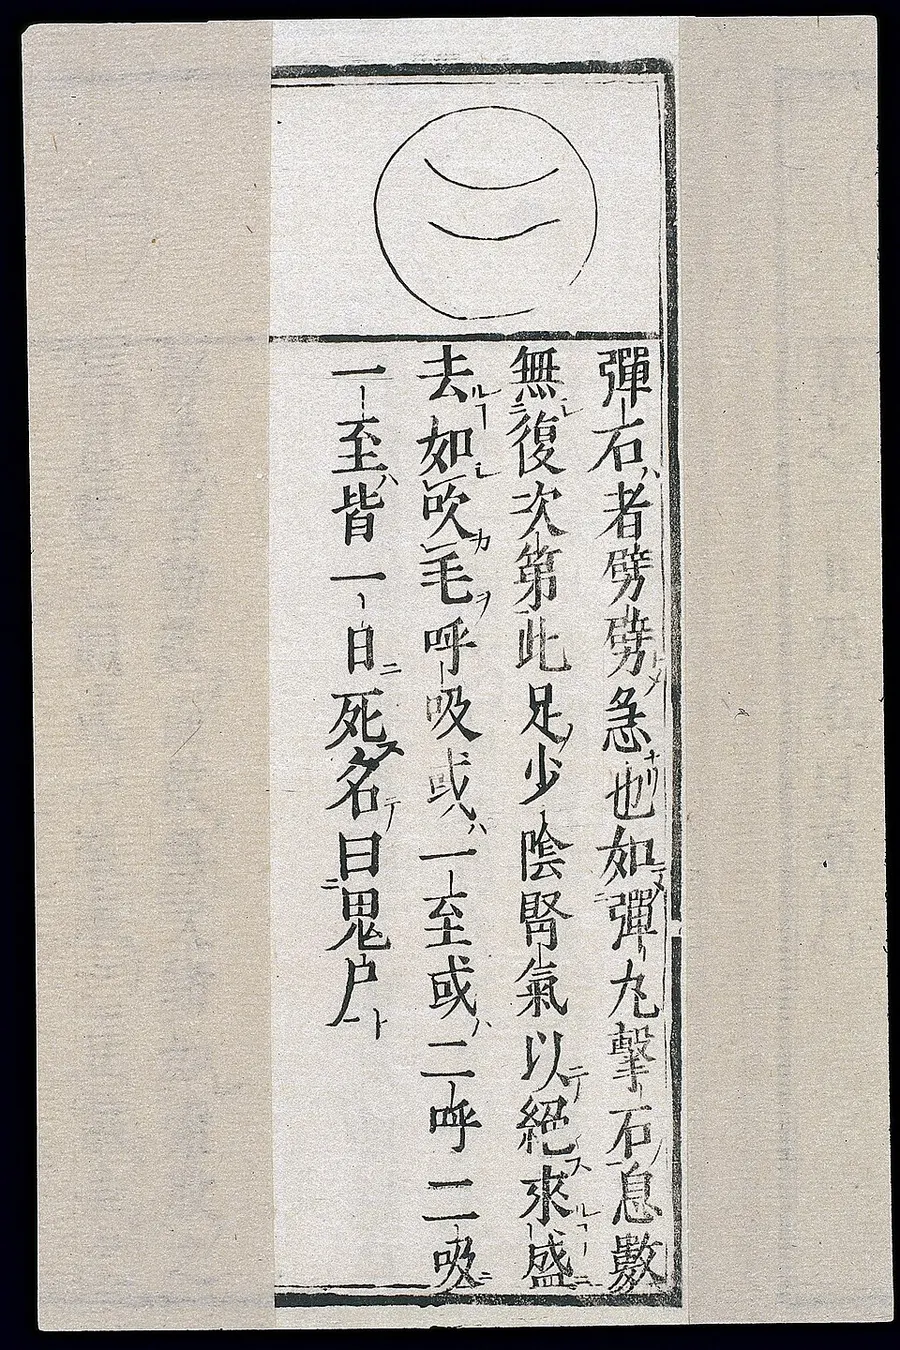 彈石者劈劈急也如彈丸擊石息數
無復次第此足少陰腎氣以絕來盛
去如吹毛呼吸或一至或二呼二吸
一至皆一日死名曰鬼户